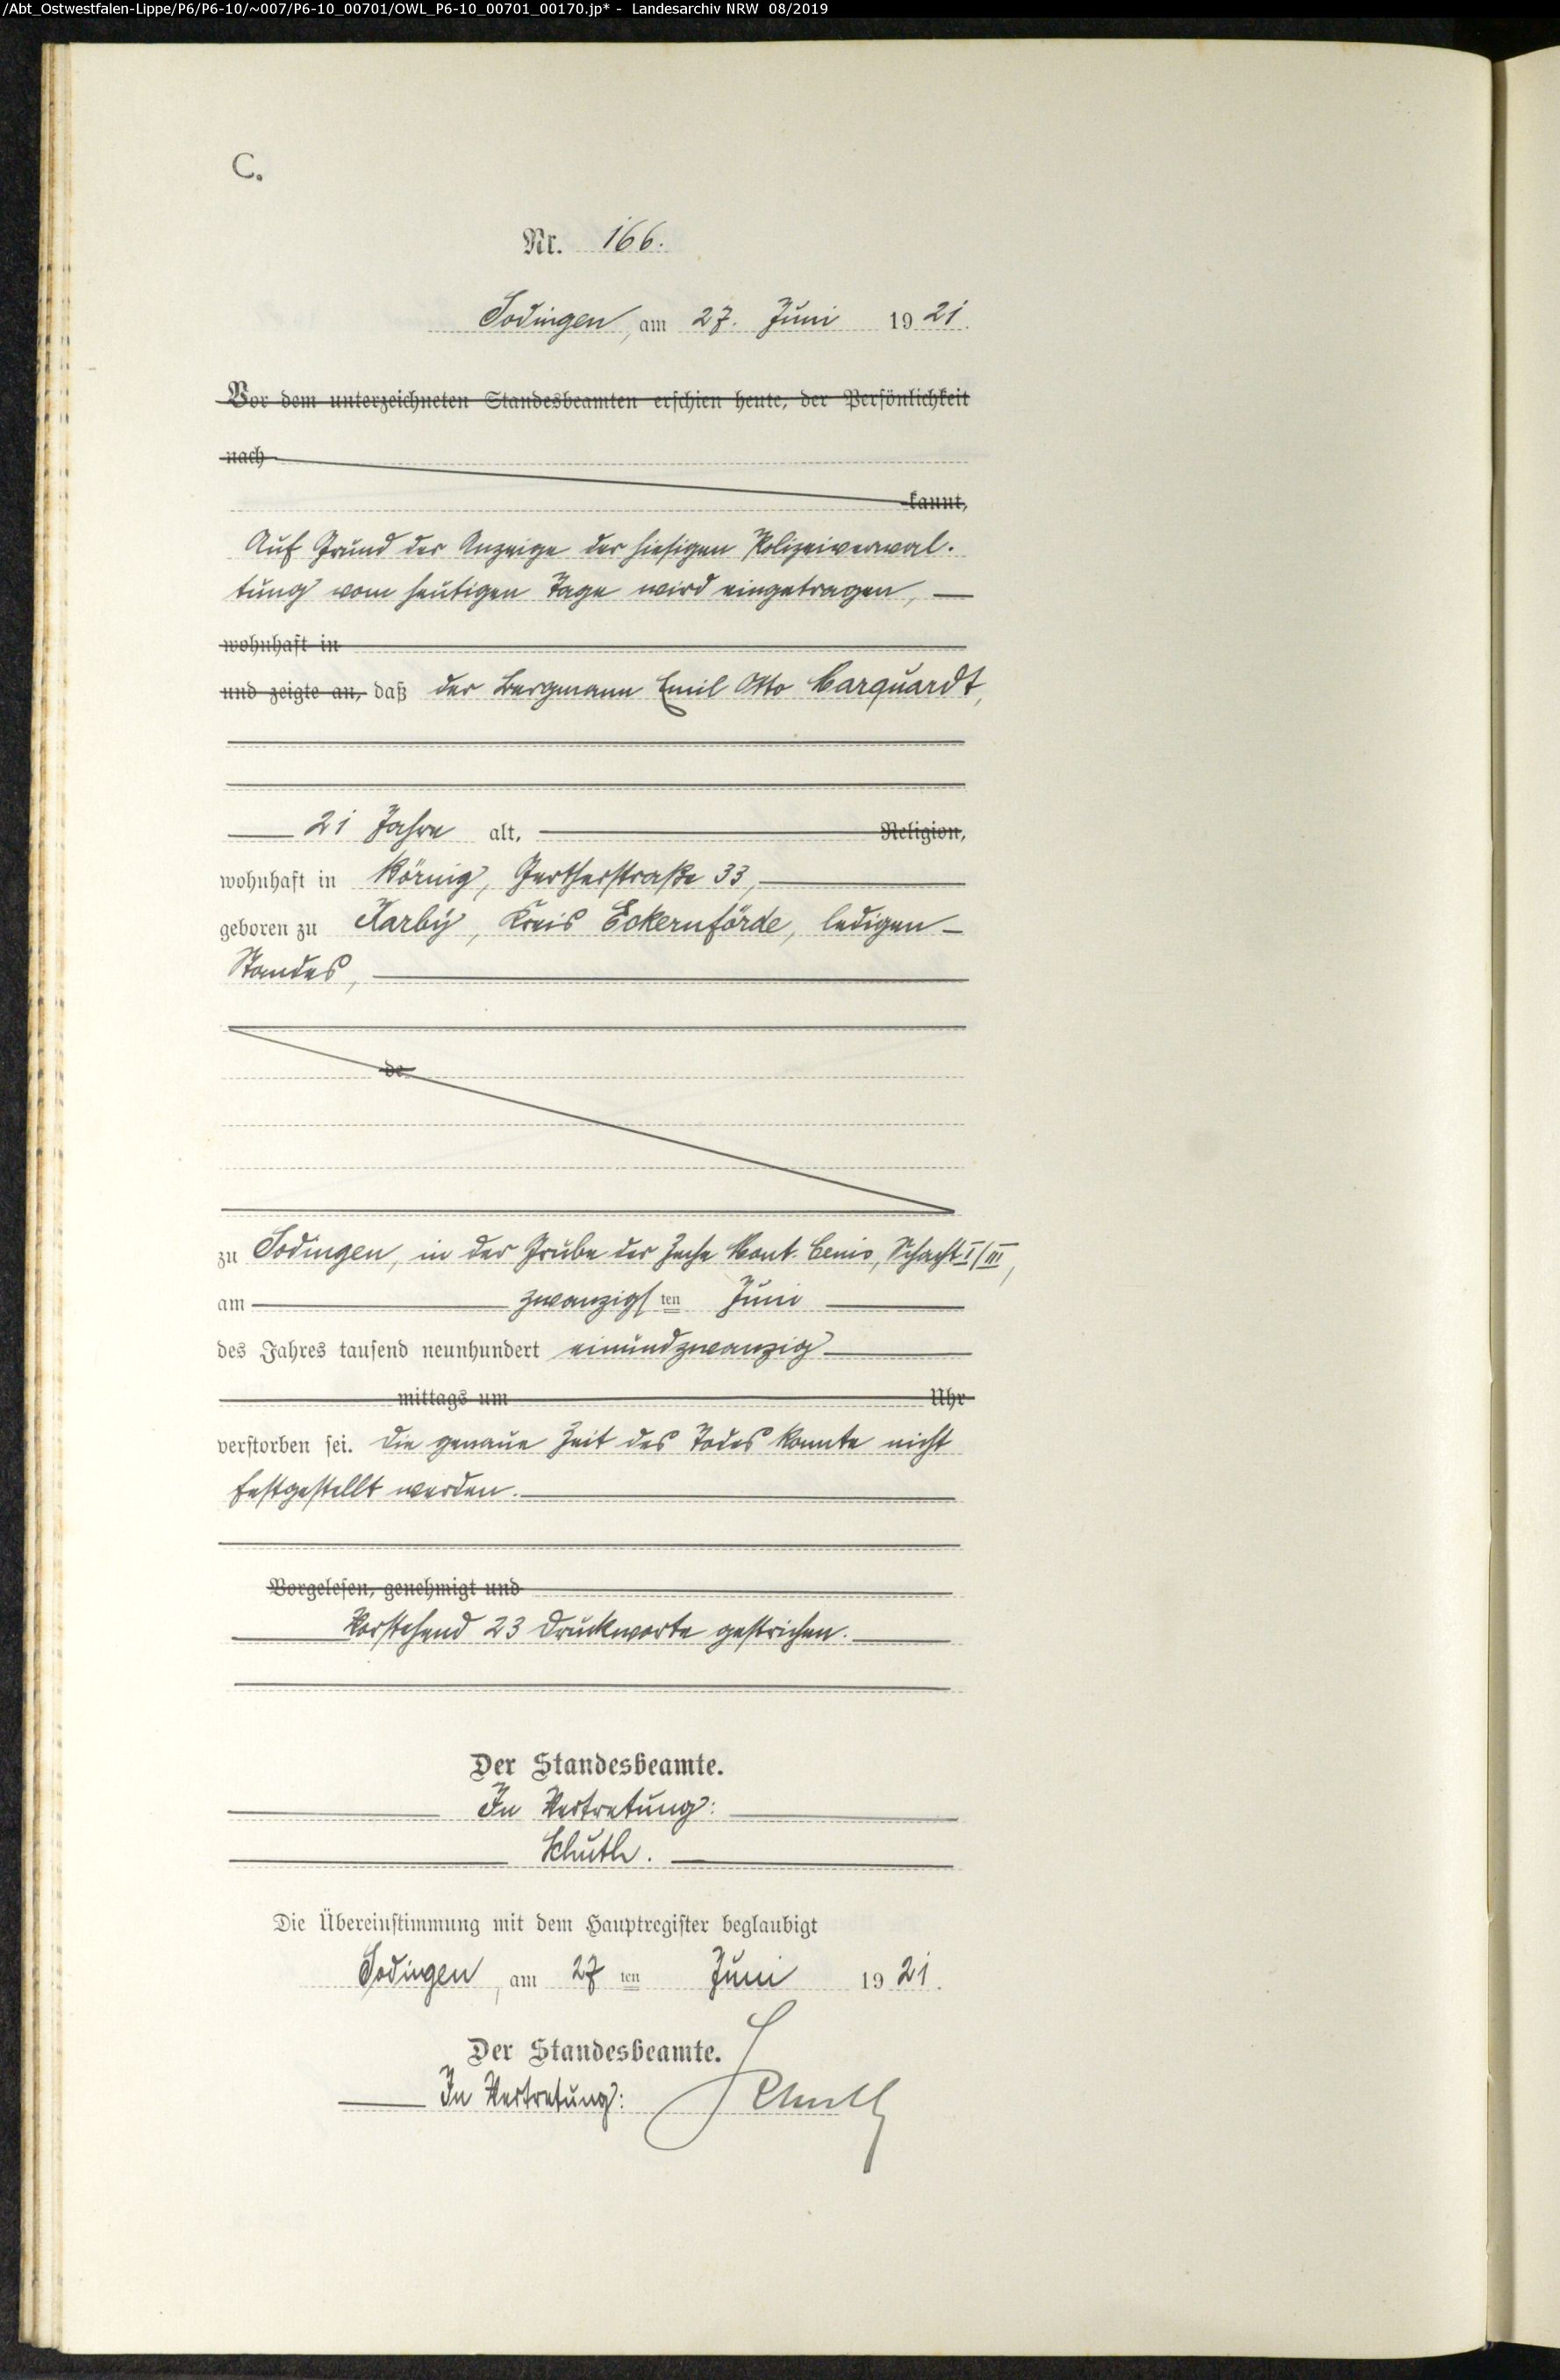 /Abt_Ostwestfalen-Lippe/P6/P6-10/~007/P6-10_00701/OWL_P6-10_00701_00170.jp* - Landesarchiv NRW 08/2019
C.
Nr. 166.
Sodingen, am 27. Juni 1921.
Vor dem unterzeichneten Standesbeamten erschien heute, der Persönlichkeit
nach
kannt,
Auf Grund der Anzeige der hiesigen Polizeiverwal-
tung vom heutigen Tage wird eingetragen,
wohnhaft in
und zeigte an, daß der Bergmann Emil Otto Marquardt,
21 Jahre alt, Religion,
wohnhaft in Börnig, Gertherstraße 33,
geboren zu Karby, Kreis Eckernförde, ledigen
Standes,
de
zu Sodingen, in der Grube der Zeche Mont-Cenis, Schacht I/III,
am zwanzigsten Juni
des Jahres tausend neunhundert einundzwanzig
mittags um Uhr
verstorben sei. Die genaue Zeit des Todes konnte nicht
festgestellt werden.
Vorgelesen, genehmigt und
Vorstehend 23 Druckworte gestrichen.
Der Standesbeamte.
In Vertretung:
Schuth.
Die Übereinstimmung mit dem Hauptregister beglaubigt
Sodingen, am 27ten Juni 1921.
Der Standesbeamte.
In Vertretung: Schuth